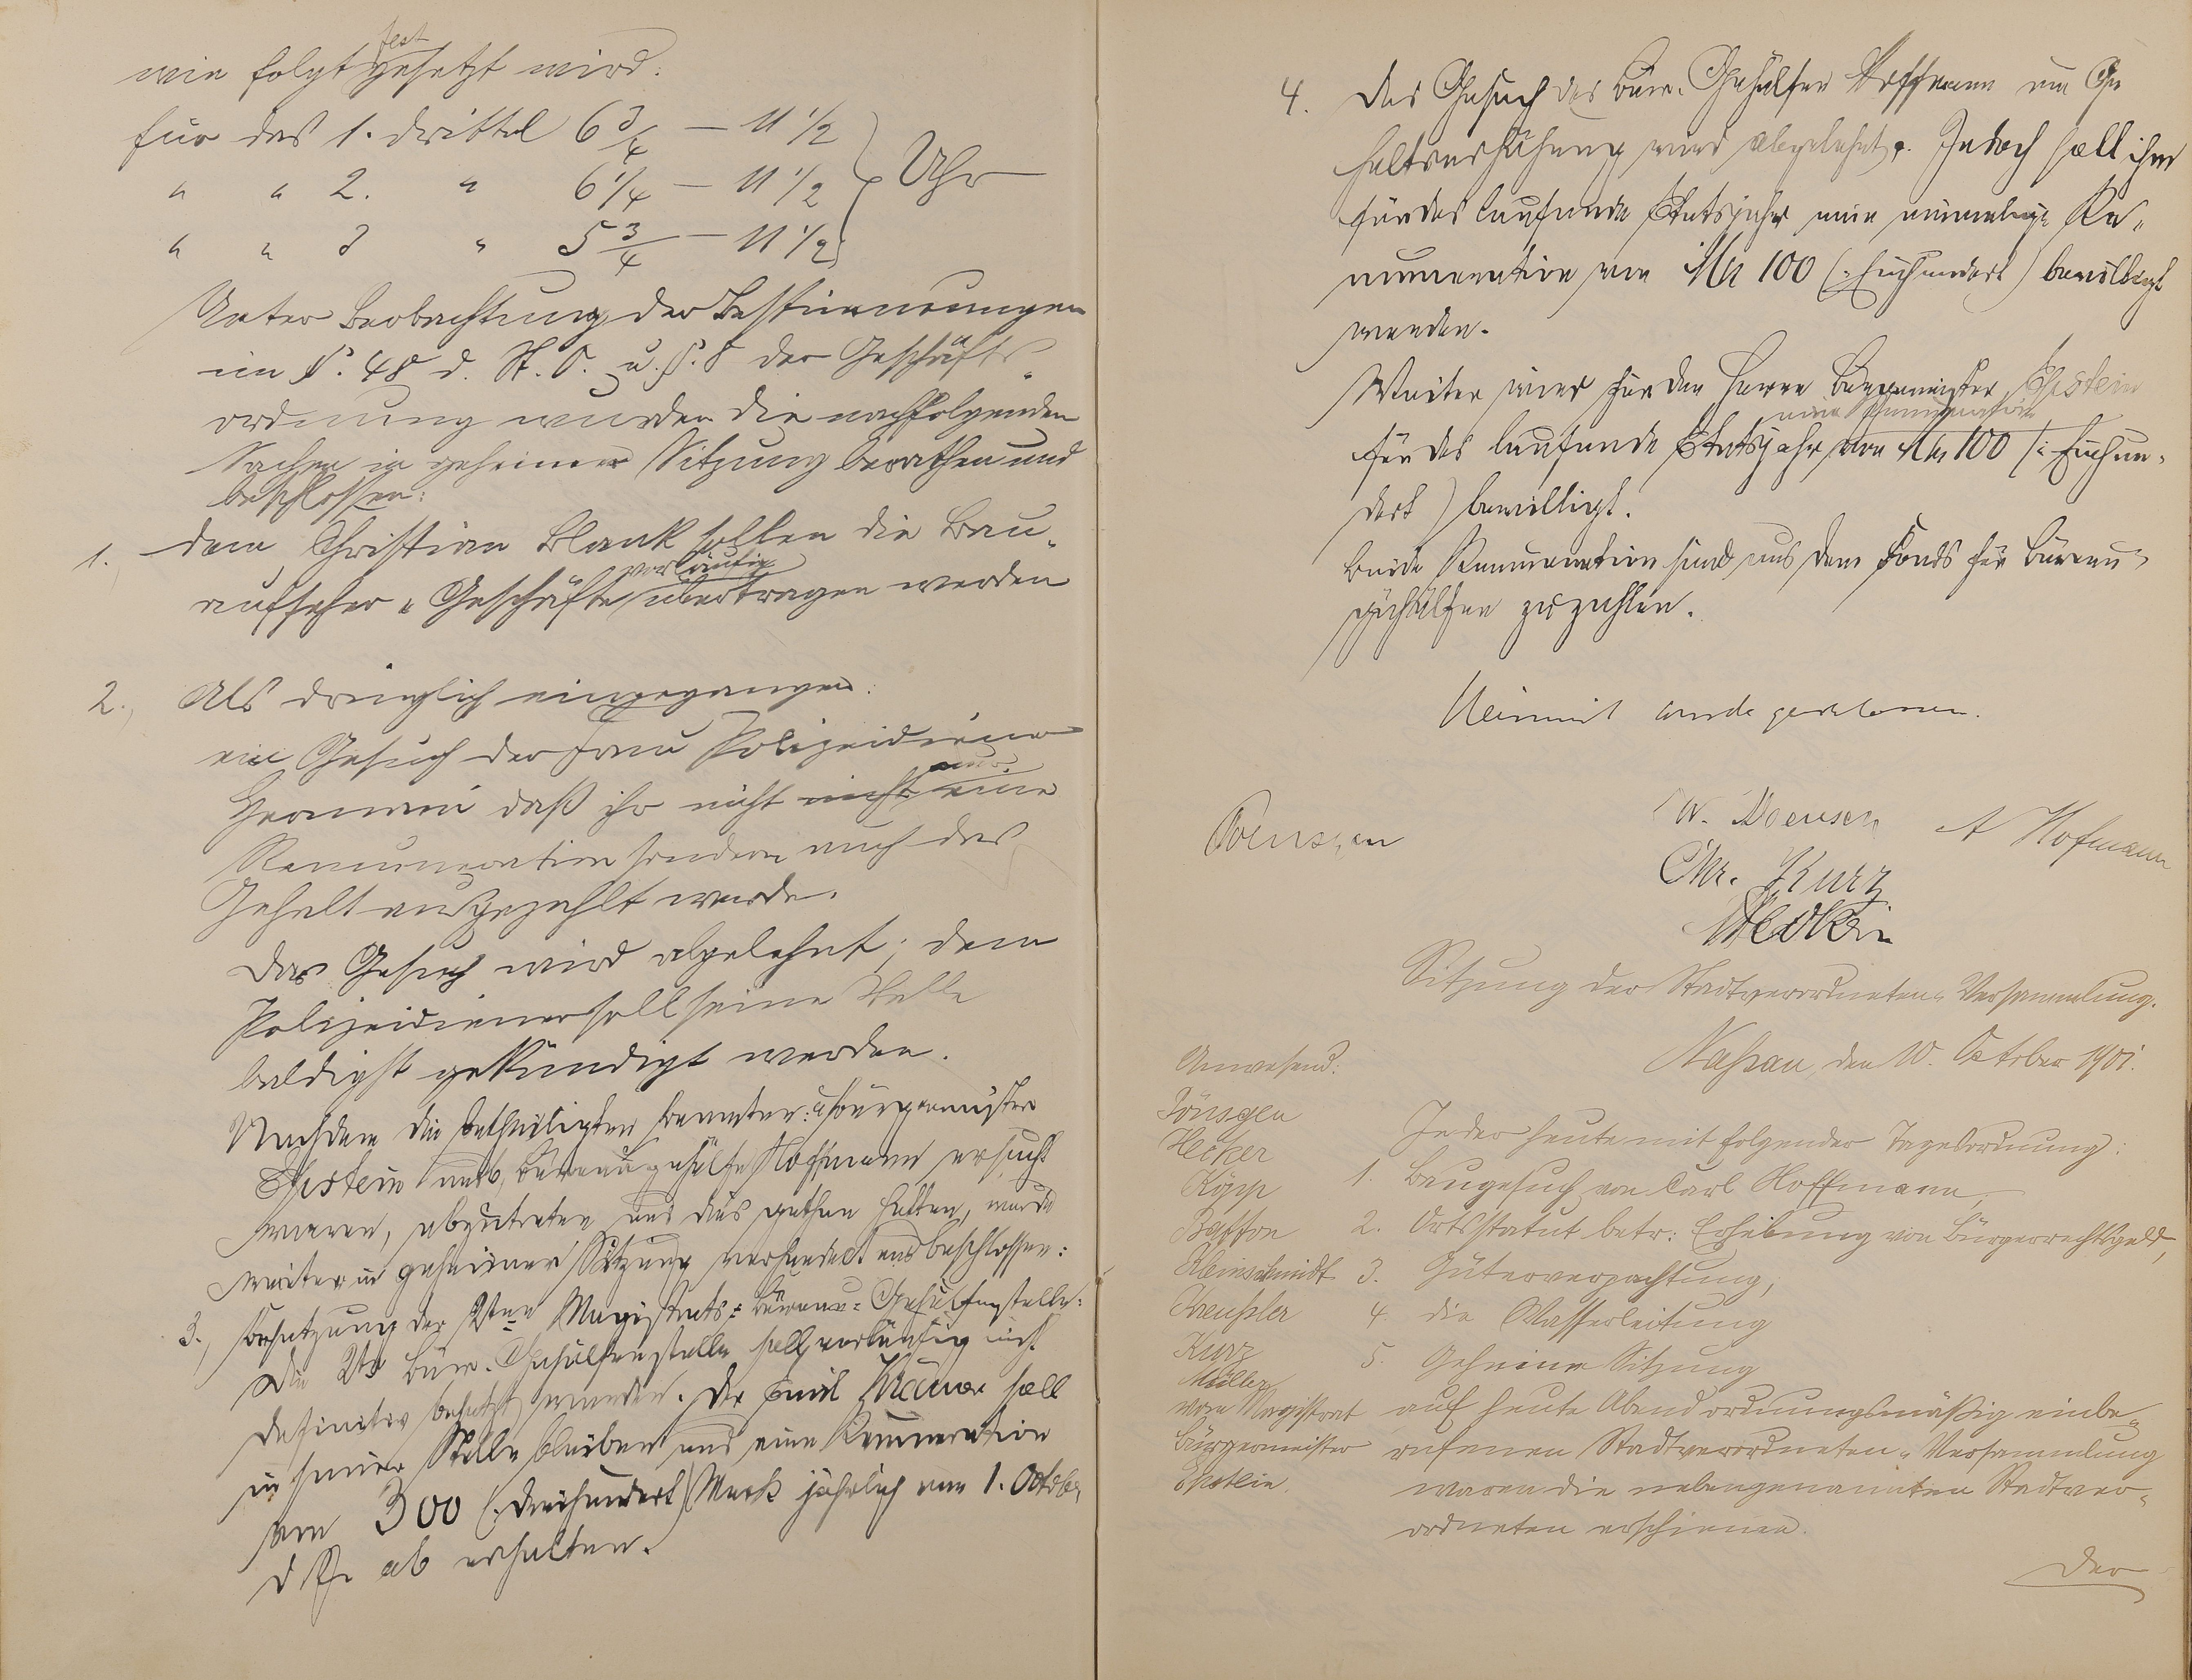 wie folgt festgesetzt wird:
für das 1. Drittel 6 3/4 – 11 1/2
" " 2. " 6 1/4 – 11 1/2 } Uhr
" " 3 " 5 3/4 – 11 1/2
Unter Beobachtung der Bestimmungen
im §. 48 d. St. O. u. §. 8 der Geschäfts-
ordnung wurden die nachfolgenden
Sachen in geheimer Sitzung berathen und
beschlossen:
1. Dem Christian Blank sollen die Bau-
aufseher-Geschäfte vorläufig übertragen werden
2., Als dringlich eingegangen:
ein Gesuch der Frau Polizeidiener
daß ihr nicht nicht nur eine
Remuneration sondern auch das
Gehalt ausgezahlt werde.
Das Gesuch wird abgelehnt; dem
Polizeidiener soll seine Stelle
baldigst gekündigt werden.
Nachdem die betheiligten Beamten: Bürgermeister
Epstein und Büreaugehülfe Hoffmann ersucht
waren, abzutreten und dies gethan hatten, wurde
weiter in geheimer Sitzung verhandelt und beschlossen:
3., Besetzung der 2ten Magistrats-Büreau-Gehülfenstelle:
Die 2te Büro. Gehülfenstelle soll vorläufig nicht
definitiv besetzt werden. Der Emil soll
in seiner Stelle bleiben und eine Remuneration
von 300 (:Dreihundert) Mark jährlich vom 1. October
d Js. ab erhalten.
4. Das Gesuch des Büro. Gehülfen Hoffmann um Ge
haltserhöhung wird abgelehnt. Jedoch soll ihm
für das laufende Etatsjahr eine einmalige Re-
muneration von Mk 100 (:Einhundert) bewilligt
werden.
Weiter wird für den Herrn Bürgermeister Epstein
für das laufende Etatsjahr eine Remuneration von Mk 100 (:Einhun-
dert) bewilligt.
Beide Remuneration sind aus dem Fonds für Büreau-
gehülfen zu zahlen.
Hiermit wurde geschlossen.
W. A Hofmann
Chr. Kurz
Hecker
Sitzung der Stadtverordneten-Versammlung.
Nassau, den 10. October 1901.
Anwesend:
Jönsgen
Hecker
Köpp
Kleinschmidt
Kurz
Müller
vom Magistrat
Bürgermeister
Epstein.
In der heute mit folgender Tagesordnung:
1. Baugesuch von Carl Hoffmann,
2. Ortsstatut betr: Erhebung von Bürgerrechtsgeld,
3. Güterverpachtung,
4. die Wasserleitung
5. Geheime Sitzung
auf heute Abend ordnungsmäßig einbe-
rufenen Stadtverordneten-Versammlung
waren die nebengenannten Stadtver-
ordneten erschienen.
Der